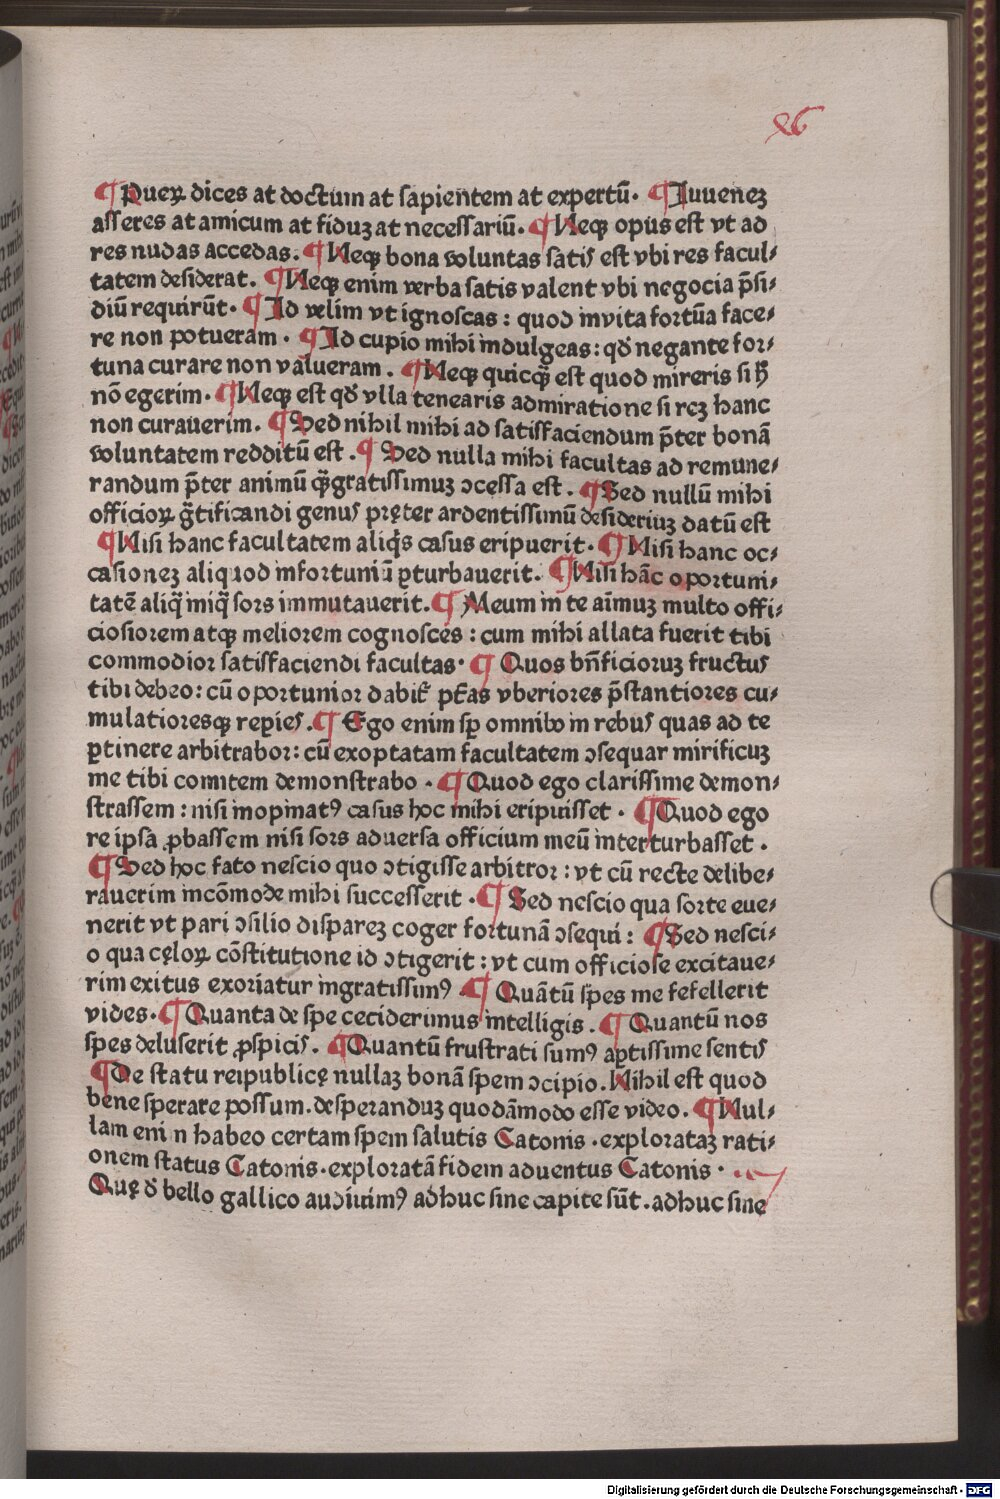 26
¶ Pueꝝ dices at doctum at sapientem at expertū. ¶ Iuuenez
asseres at amicum at fiduȝ at necessariū. ¶ Neqꝫ opus est vt ad
res nudas accedas. ¶ Neqꝫ bona voluntas satis est vbi res facul⸗
tatem desiderat. ¶ Neqꝫ enim verba satis valent vbi negocia p̄si⸗
diū requirūt. ¶ Id velim vt ignoscas : quod inuita fortūa face⸗
re non potueram . ¶ Id cupio mihi indulgeas : qđ negante for⸗
tuna curare non valueram . ¶ Neqꝫ quicq̄ȝ est quod mireris si ħ
nō egerim. ¶ Neqꝫ est qđ vlla tenearis admiratione si reȝ hanc
non curauerim. ¶ Sed nihil mihi ad satisfaciendum p̄ter bonā
voluntatem redditū est . ¶ Sed nulla mihi facultas ad remune⸗
randum p̄ter animū q̄ȝgratissimuȝ ↄcessa est . ¶ Sed nullū mihi
officioꝝ g̃tificandi genus pręter ardentissimū desideriuȝ datū est
¶ Nisi hanc facultatem aliq̇s casus eripuerit. ¶ Nisi hanc oc⸗
casioneȝ aliquod infortuniū ꝑturbauerit. ¶ Nisi hāc oportuni⸗
tatē aliq̃ iniq̃ sors immutauerit. ¶ Meum in te aīmuȝ multo offi⸗
ciosiorem atqꝫ meliorem cognosces : cum mihi allata fuerit tibi
commodior satisfaciendi facultas. ¶ Quos bn̄ficioruȝ fructus
tibi debeo : cū oportunior dabit̃ pt̄as vberiores p̄stantiores cu⸗
mulatioresqꝫ repies. ¶ Ego enim sꝑ omnibꝰ in rebus quas ad te
ꝑtinere arbitrabor : cū exoptatam facultatem ↄsequar mirificuȝ
me tibi comitem demonstrabo . ¶ Quod ego clarissime demon⸗
strassem : nisi inopinatꝰ casus hoc mihi eripuisset . ¶ Quod ego
re ipsa ꝓbassem nisi sors aduersa officium meū interturbasset .
¶ Sed hoc fato nescio quo ↄtigisse arbitror : vt cū recte delibe⸗
rauerim incōmode mihi successerit . ¶ Sed nescio qua sorte eue⸗
nerit vt pari ↄsilio dispareȝ coger fortunā ↄsequi : ¶ Sed nesci⸗
o qua cęloꝝ cōstitutione id ↄtigerit : vt cum officiose excitaue⸗
rim exitus exoriatur ingratissimꝰ . ¶ Quātū spes me fefellerit
vides. ¶ Quanta de spe ceciderimus intelligis . ¶ Quantū nos
spes deluserit ꝓspicis . ¶ Quantū frustrati sumꝰ aꝑtissime sentis
¶ De statu reipublicę nullaȝ bonā spem ↄcipio. Nihil est quod
bene sperare possum. desperanduȝ quodāmodo esse video. ¶ Nul⸗
lam enim habeo certam spem salutis Catonis . explorataȝ rati⸗
onem status Catonis. exploratā fidem aduentus Catonis .
Quę đ bello gallico audiuimꝰ adhuc sine capite sūt . adhuc sine
Digitalisierung gefördert durch die Deutsche Forschungsgemeinschaft - DFG